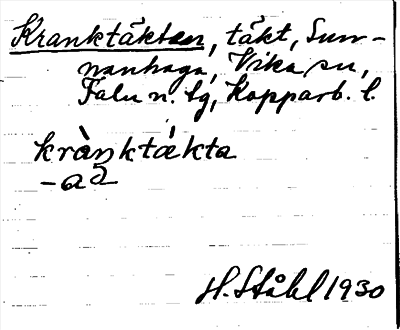 Kranktäktan, täkt, Sun-
nanhaga, Vika sn,
Falu n. tg, Kopparb. l.
krànktákta
-a2
H. Ståhl 1930